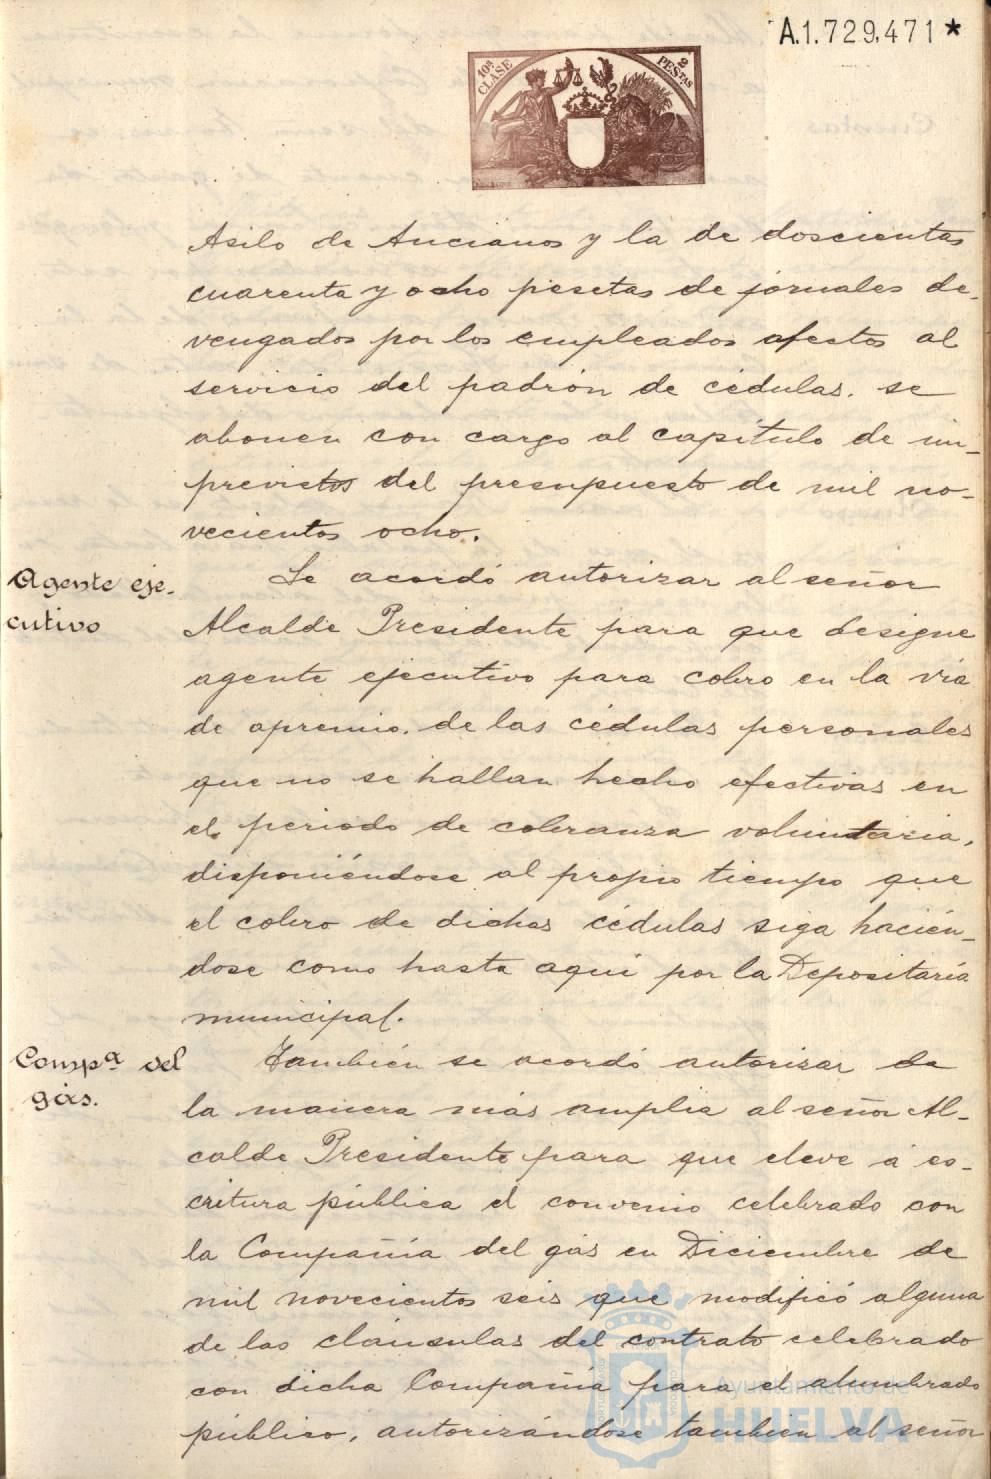 A.1.729.471 *
10ª CLASE
2 PESTAS
Asilo de Ancianos y la de doscientas
cuarenta y ocho pesetas de jornales de-
vengados por los empleados afectos al
servicio del padrón de cédulas. se
abonen con cargo al capítulo de im-
previstos del presupuesto de mil no-
vecientos ocho.
Agente eje-
cutivo
Se acordó autorizar al señor
Alcalde Presidente para que designe
agente ejecutivo para cobro en la via
de apremio. de las cédulas personales
que no se hallan hecho efectivas en
el periodo de cobranza voluntaria,
disponiéndose al propio tiempo que
el cobro de dichas cédulas siga hacién-
dose como hasta aqui por la Depositaría
municipal.
Compª del
gás.
También se acordó autorizar de
la manera más amplia al señor Al-
calde Presidente para que eleve á es-
critura pública el convenio celebrado con
la Compañía del gás en Diciembre de
mil novecientos seis que modificó alguna
de las cláusulas del contrato celebrado
con dicha Compañía para el alumbrado
público, autorizándose también al señor
Ayuntamiento de
HUELVA